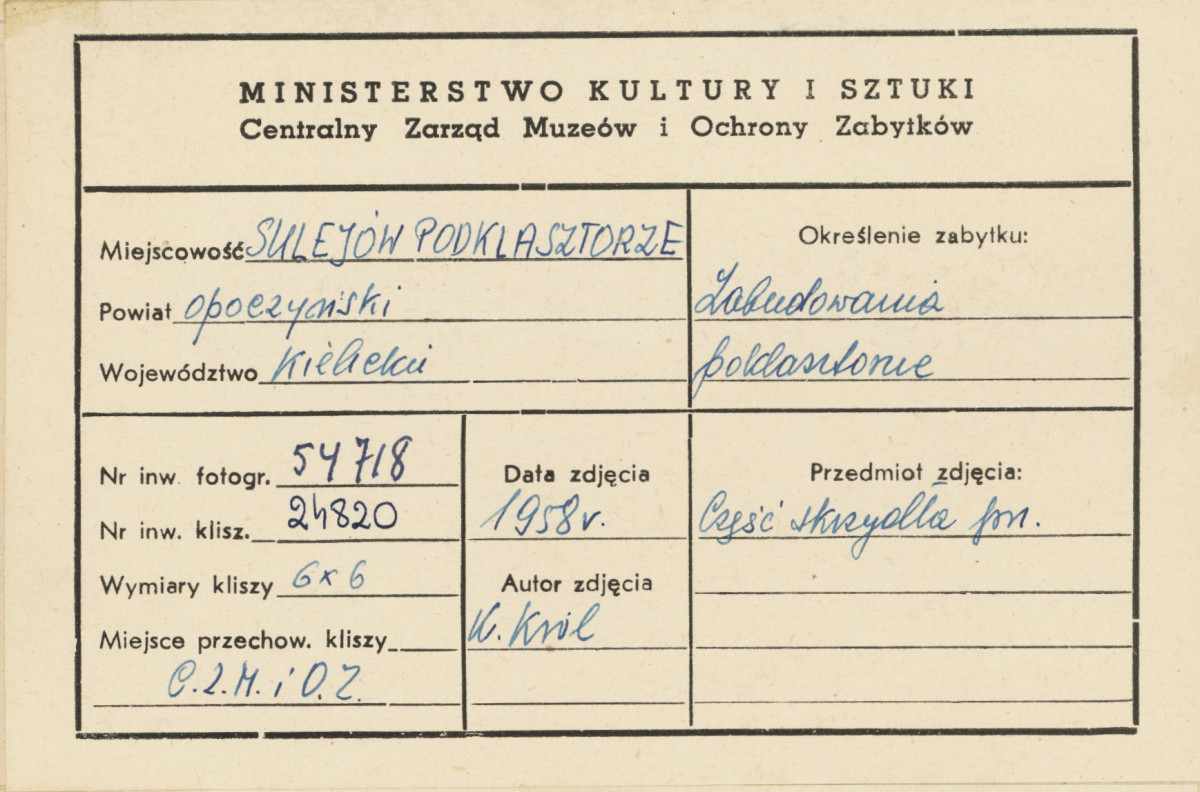 MINISTERSTWO KULTURY I SZTUKI
Centralny Zarząd Muzeów i Ochrony Zabytków
Miejscowość SULEJÓW PODKLASZTORZE
Powiat opoczyński
Województwo Kieleckie
Określenie zabytku:
Zabudowania
poklasztorne
Nr inw. fotogr. 54718
Nr inw. klisz. 24820
Wymiary kliszy 6x6
Miejsce przechow. kliszy
C.Z.M. i O.Z.
Data zdjęcia
1958 r.
Autor zdjęcia
K. Król
Przedmiot zdjęcia:
Część skrzydła pn.